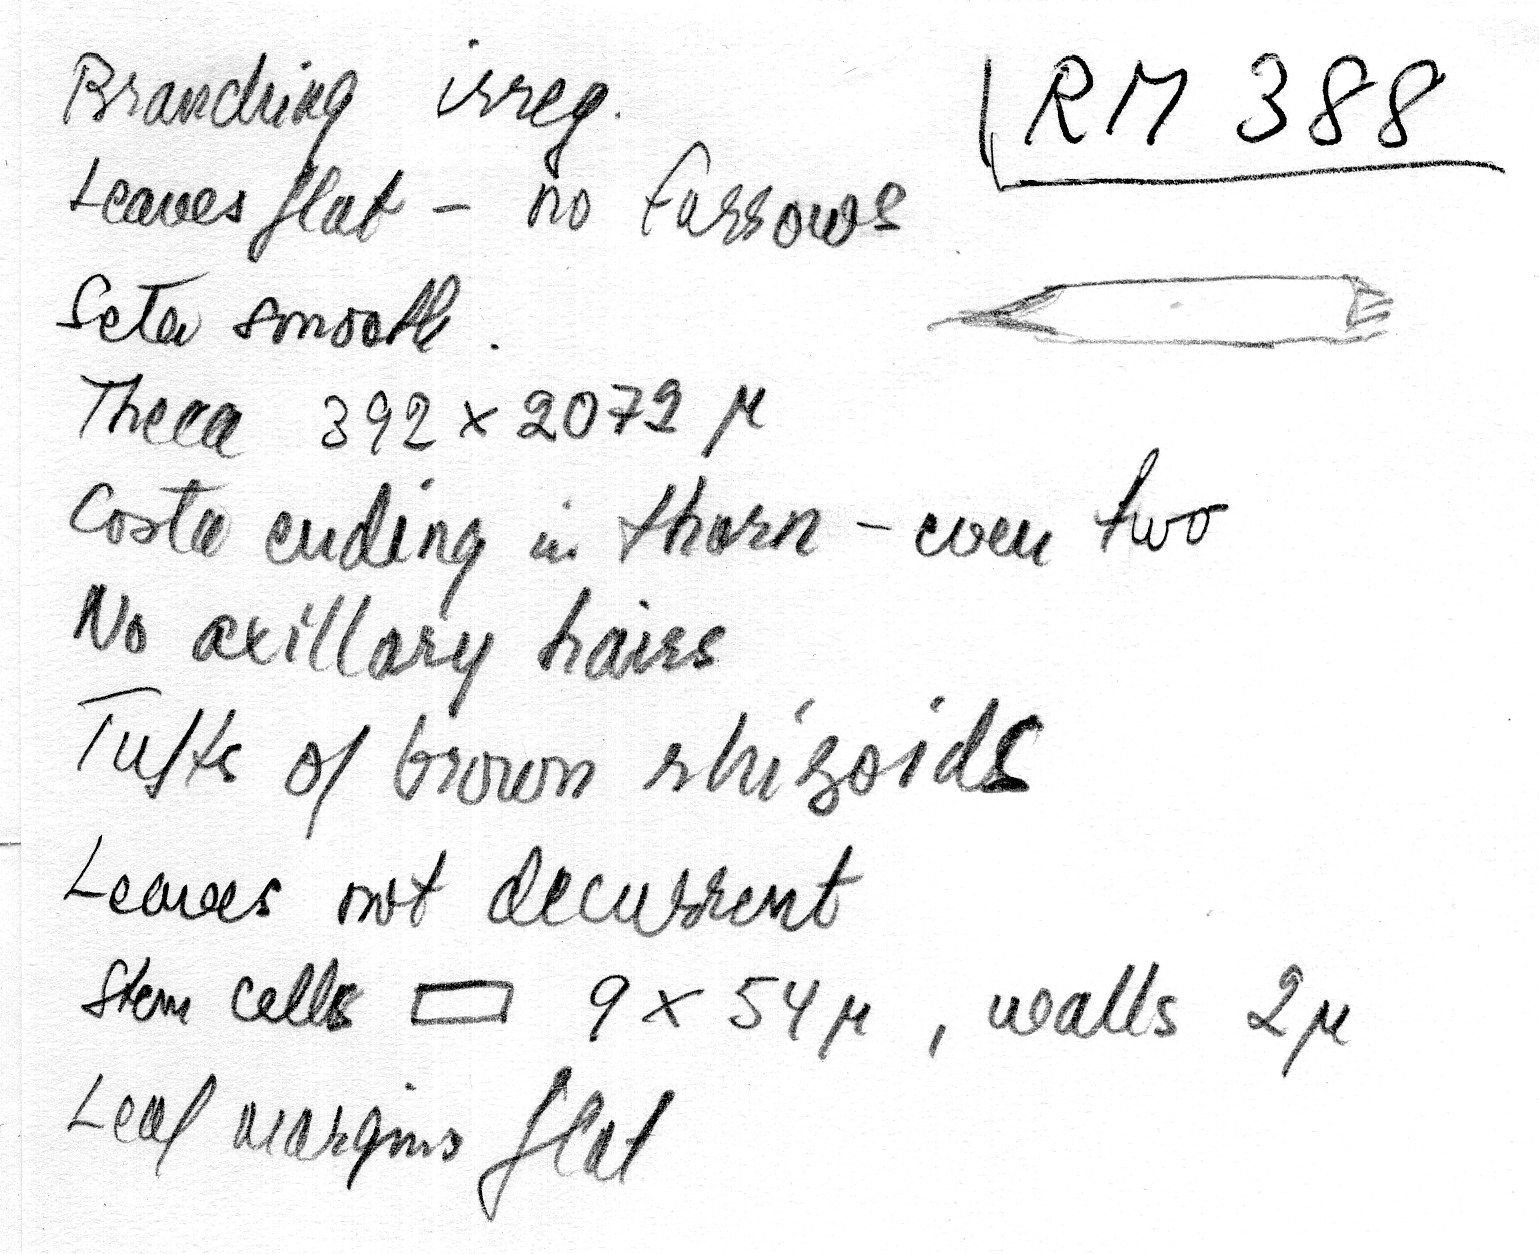 Branching irreg.
RM 388
Leaves flat - no furrows
Seta smooth.
Theca 392 x 2072 μ
Costa ending in thorn - even two
No axillary hairs
Tufts of brown rhizoids
Leaves not decurrent
Stem cells 9 x 54 μ, walls 2 μ
Leaf margins flat